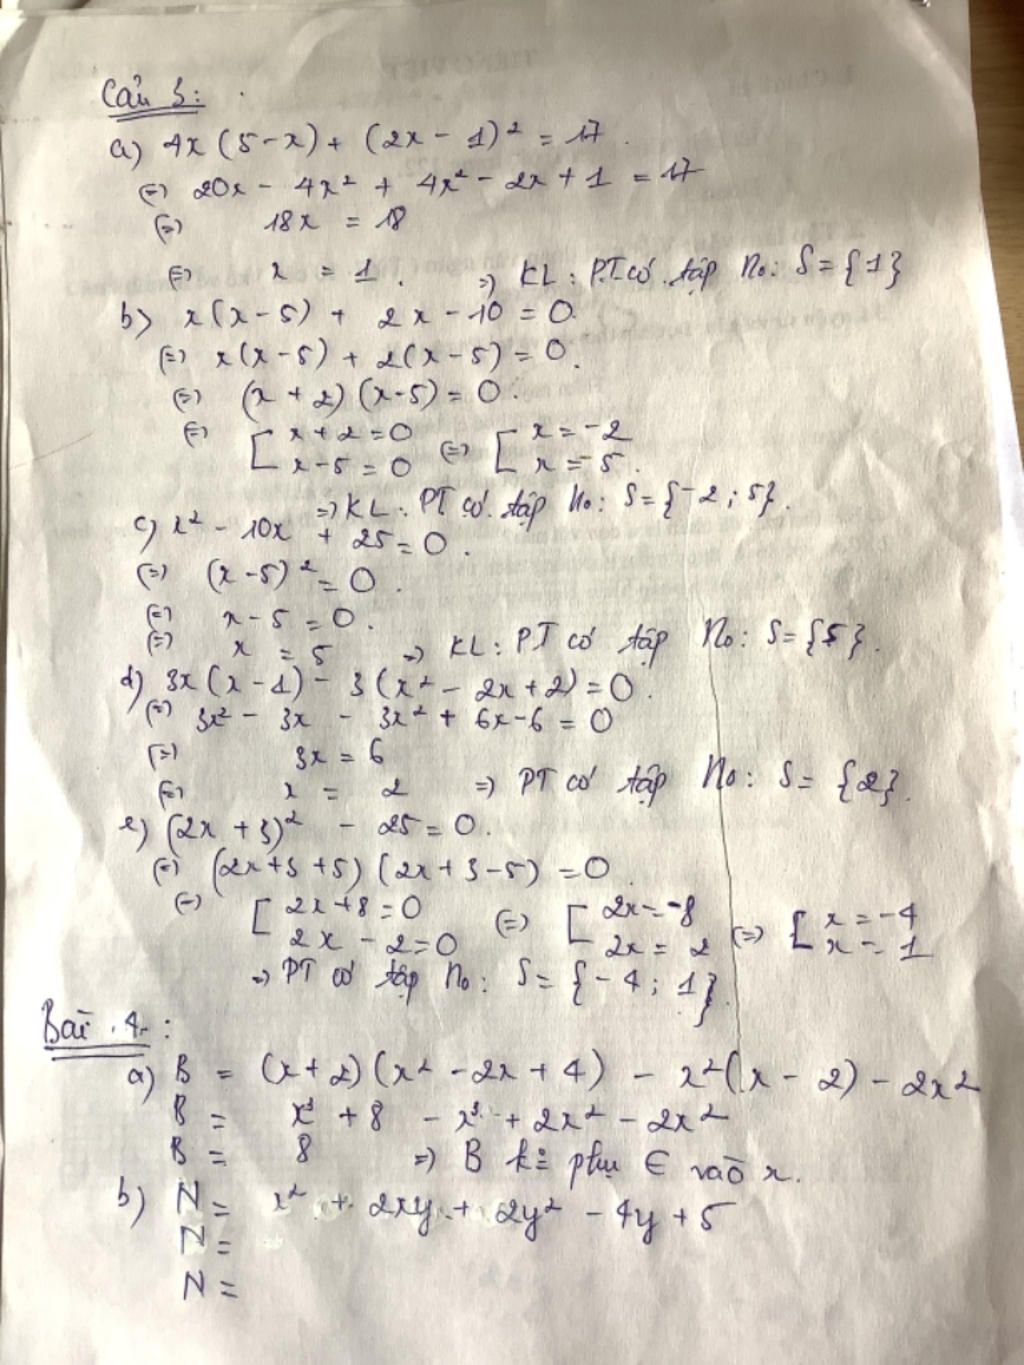 Câu 3:
a) 4x (5 - x) + (2x - 1)² = 17.
(=) 20x - 4x² + 4x² - 2x + 1 = 17
(=) 18x = 18
(=) x = 1. => KL: PT có tập No: S = {1}
b) x(x - 5) + 2x - 10 = 0.
(=) x(x - 5) + 2(x - 5) = 0.
(=) (x + 2) (x - 5) = 0.
(=) [ x + 2 = 0 (=) [ x = -2
x - 5 = 0 x = 5.
=> KL: PT có tập No: S = {-2; 5}.
c) x² - 10x + 25 = 0.
(=) (x - 5)² = 0.
(=) x - 5 = 0.
(=) x = 5 => KL: PT có tập No: S = {5}.
d) 3x (x - 1) - 3 (x² - 2x + 2) = 0.
(=) 3x² - 3x - 3x² + 6x - 6 = 0
(=) 3x = 6
(=) x = 2 => PT có tập No: S = {2}.
e) (2x + 3)² - 25 = 0.
(=) (2x + 3 + 5) (2x + 3 - 5) = 0
(=) [ 2x + 8 = 0 (=) [ 2x = -8 (=) [ x = -4
2x - 2 = 0 2x = 2 x = 1
=> PT có tập No: S = {-4; 1}.
Bài 4:
a) B = (x + 2) (x² - 2x + 4) - x² (x - 2) - 2x²
B = x³ + 8 - x³ + 2x² - 2x²
B = 8 => B k= phụ ∈ vào x.
b) N = x² + 2xy + 2y² - 4y + 5
N =
N =